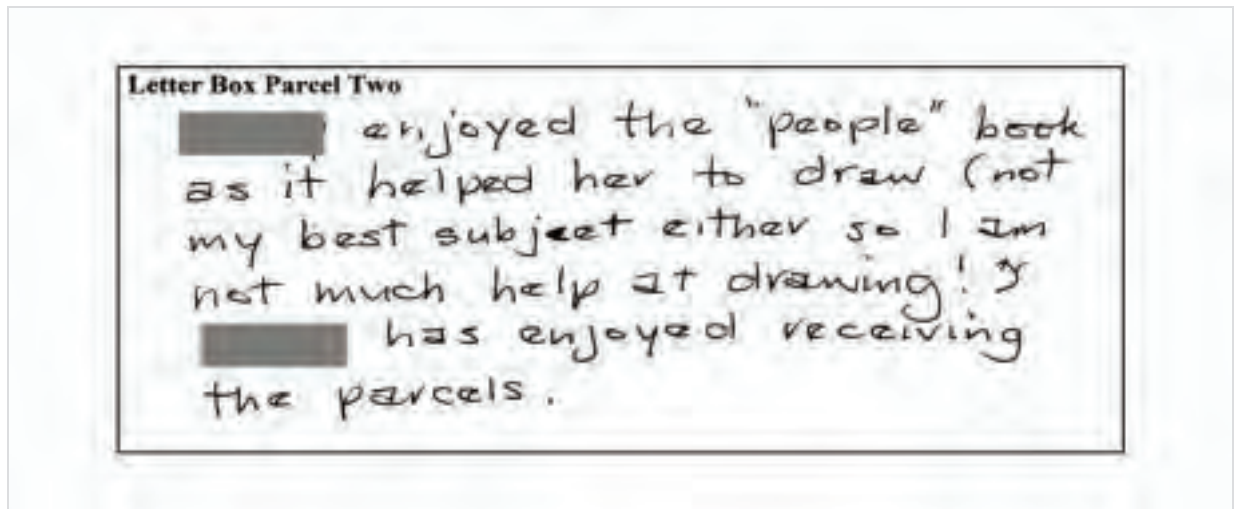 Letter Box Parcel Two
enjoyed the "people" book
as it helped her to draw (not
my best subject either so I am
not much help at drawing!)
has enjoyed receiving
the parcels.